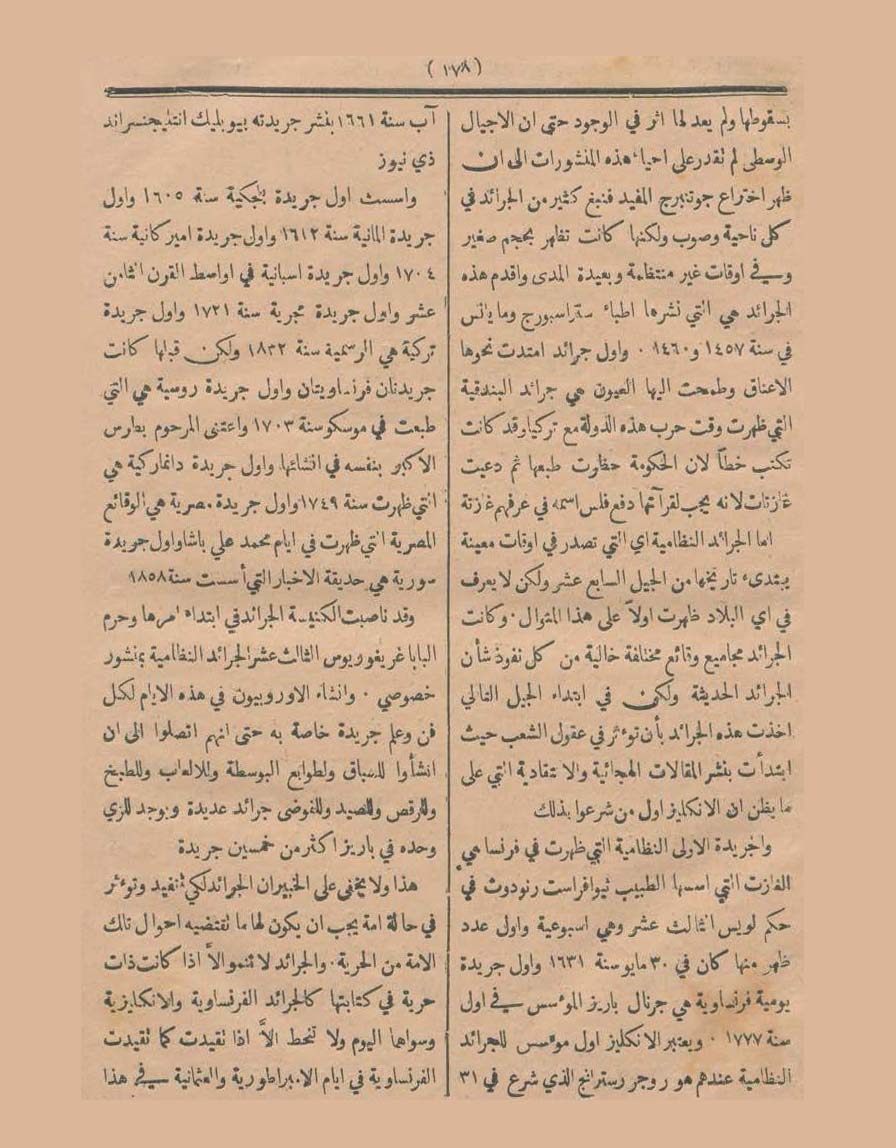 ( ١٧٨ )
بسقوطها ولم يعد لها اثر في الوجود حتى ان الاجيال
الوسطى لم تقدر على احياء هذه المنشورات الى ان
ظهر اختراع جوتنبرج المفيد فنبغ كثير من الجرائد في
كل ناحية وصوب ولكنها كانت تظهر بحجم صغير
وفي اوقات غير منتظمة وبعيدة المدى واقدم هذه
الجرائد هي التي نشرها اطباء ستراسبورج وما يانس
في سنة ١٤٥٧ و١٤٦٠ . واول جرائد امتدت نحوها
الاعناق وطمحت اليها العيون هي جرائد البندقية
التي ظهرت وقت حرب هذه الدولة مع تركيا وقد كانت
تكتب خطاً لان الحكومة حظرت طبعها ثم دعيت
غازتات لانه يجب لقرآتها دفع فلس اسمه في عرفهم غازتة
اما الجرائد النظامية اي التي تصدر في اوقات معينة
يبتدىء تاريخها من الجيل السابع عشر ولكن لا يعرف
في اي البلاد ظهرت اولاً على هذا المنوال . وكانت
الجرائد مجاميع وقائع مختلفة خالية من كل نفوذ شأن
الجرائد الحديثة ولكن في ابتداء الجيل التالي
اخذت هذه الجرائد بأن توءثر في عقول الشعب حيث
ابتدأت بنشر المقالات الهجائية والانتقادية التي على
ما يظن ان الانكليز اول من شرعوا بذلك
والجريدة الاولى النظامية التي ظهرت في فرنسا هي
الغازت التي اسسها الطبيب ثيوافراست رنودوت في
حكم لويس الثالث عشر وهي اسبوعية واول عدد
ظهر منها كان في ٣٠ مايو سنة ١٦٣١ واول جريدة
يومية فرنساوية هي جرنال باريز المؤسس في اول
سنة ١٧٧٧ . ويعتبر الانكليز اول موءسس للجرائد
النظامية عندهم هو روجر رسترانج الذي شرع في ٣١
آب سنة ١٦٦١ بنشر جريدته بيوبليك انتليجنسر اند
ذي نيوز
واسست اول جريدة بلجكية سنة ١٦٠٥ واول
جريدة المانية سنة ١٦١٢ واول جريدة اميركانية سنة
١٧٠٤ واول جريدة اسبانية في اواسط القرن الثامن
عشر واول جريدة مجرية سنة ١٧٢١ واول جريدة
تركية هي الرسمية سنة ١٨٣٢ ولكن قبلها كانت
جريدتان فرنساويتان واول جريدة روسية هي التي
طبعت في موسكو سنة ١٧٠٣ واعتنى المرحوم بطرس
الاكبر بنفسه في انشائها واول جريدة دانماركية هي
التي ظهرت سنة ١٧٤٩ واول جريدة مصرية هي الوقائع
المصرية التي ظهرت في ايام محمد علي باشا واول جريدة
سورية هي حديقة الاخبار التي أسست سنة ١٨٥٨
وقد ناصبت الكنيسة الجرائد في ابتداء امرها وحرم
البابا غريغوريوس الثالث عشر الجرائد النظامية بمنشور
خصوصي . وانشاء الاوروبيون في هذه الايام لكل
فن وعلم جريدة خاصة به حتى انهم اتصلوا الى ان
انشأوا للسباق ولطوابع البوسطة وللالعاب وللطبخ
وللرقص وللصيد وللفوضى جرائد عديدة ويوجد للزي
وحده في باريز اكثر من خمسين جريدة
هذا ولا يخفى على الخبير ان الجرائد لكي تفيد وتوءثر
في حالة امة يجب ان يكون لها ما تقتضيه احوال تلك
الامة من الحرية . والجرائد لا تنمو الاّ اذا كانت ذات
حرية في كتابتها كالجرائد الفرنساوية والانكليزية
وسواها اليوم ولا تنحط الاّ اذا تقيدت كما تقيدت
الفرنساوية في ايام الامبراطورية والعثمانية في هذا